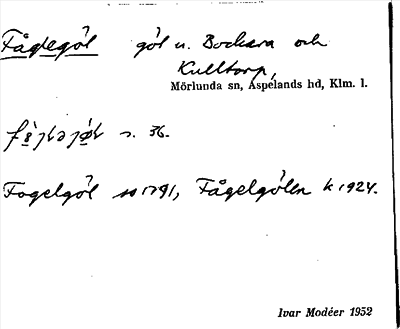 Fåglegöl göl u. Bockara och
Kulltorp,
Mörlunda sn, Aspelands hd, Klm. l.
s. 36.
Fogelgöl 1791, Fågelgölen k 1924.
Ivar Modéer 1952